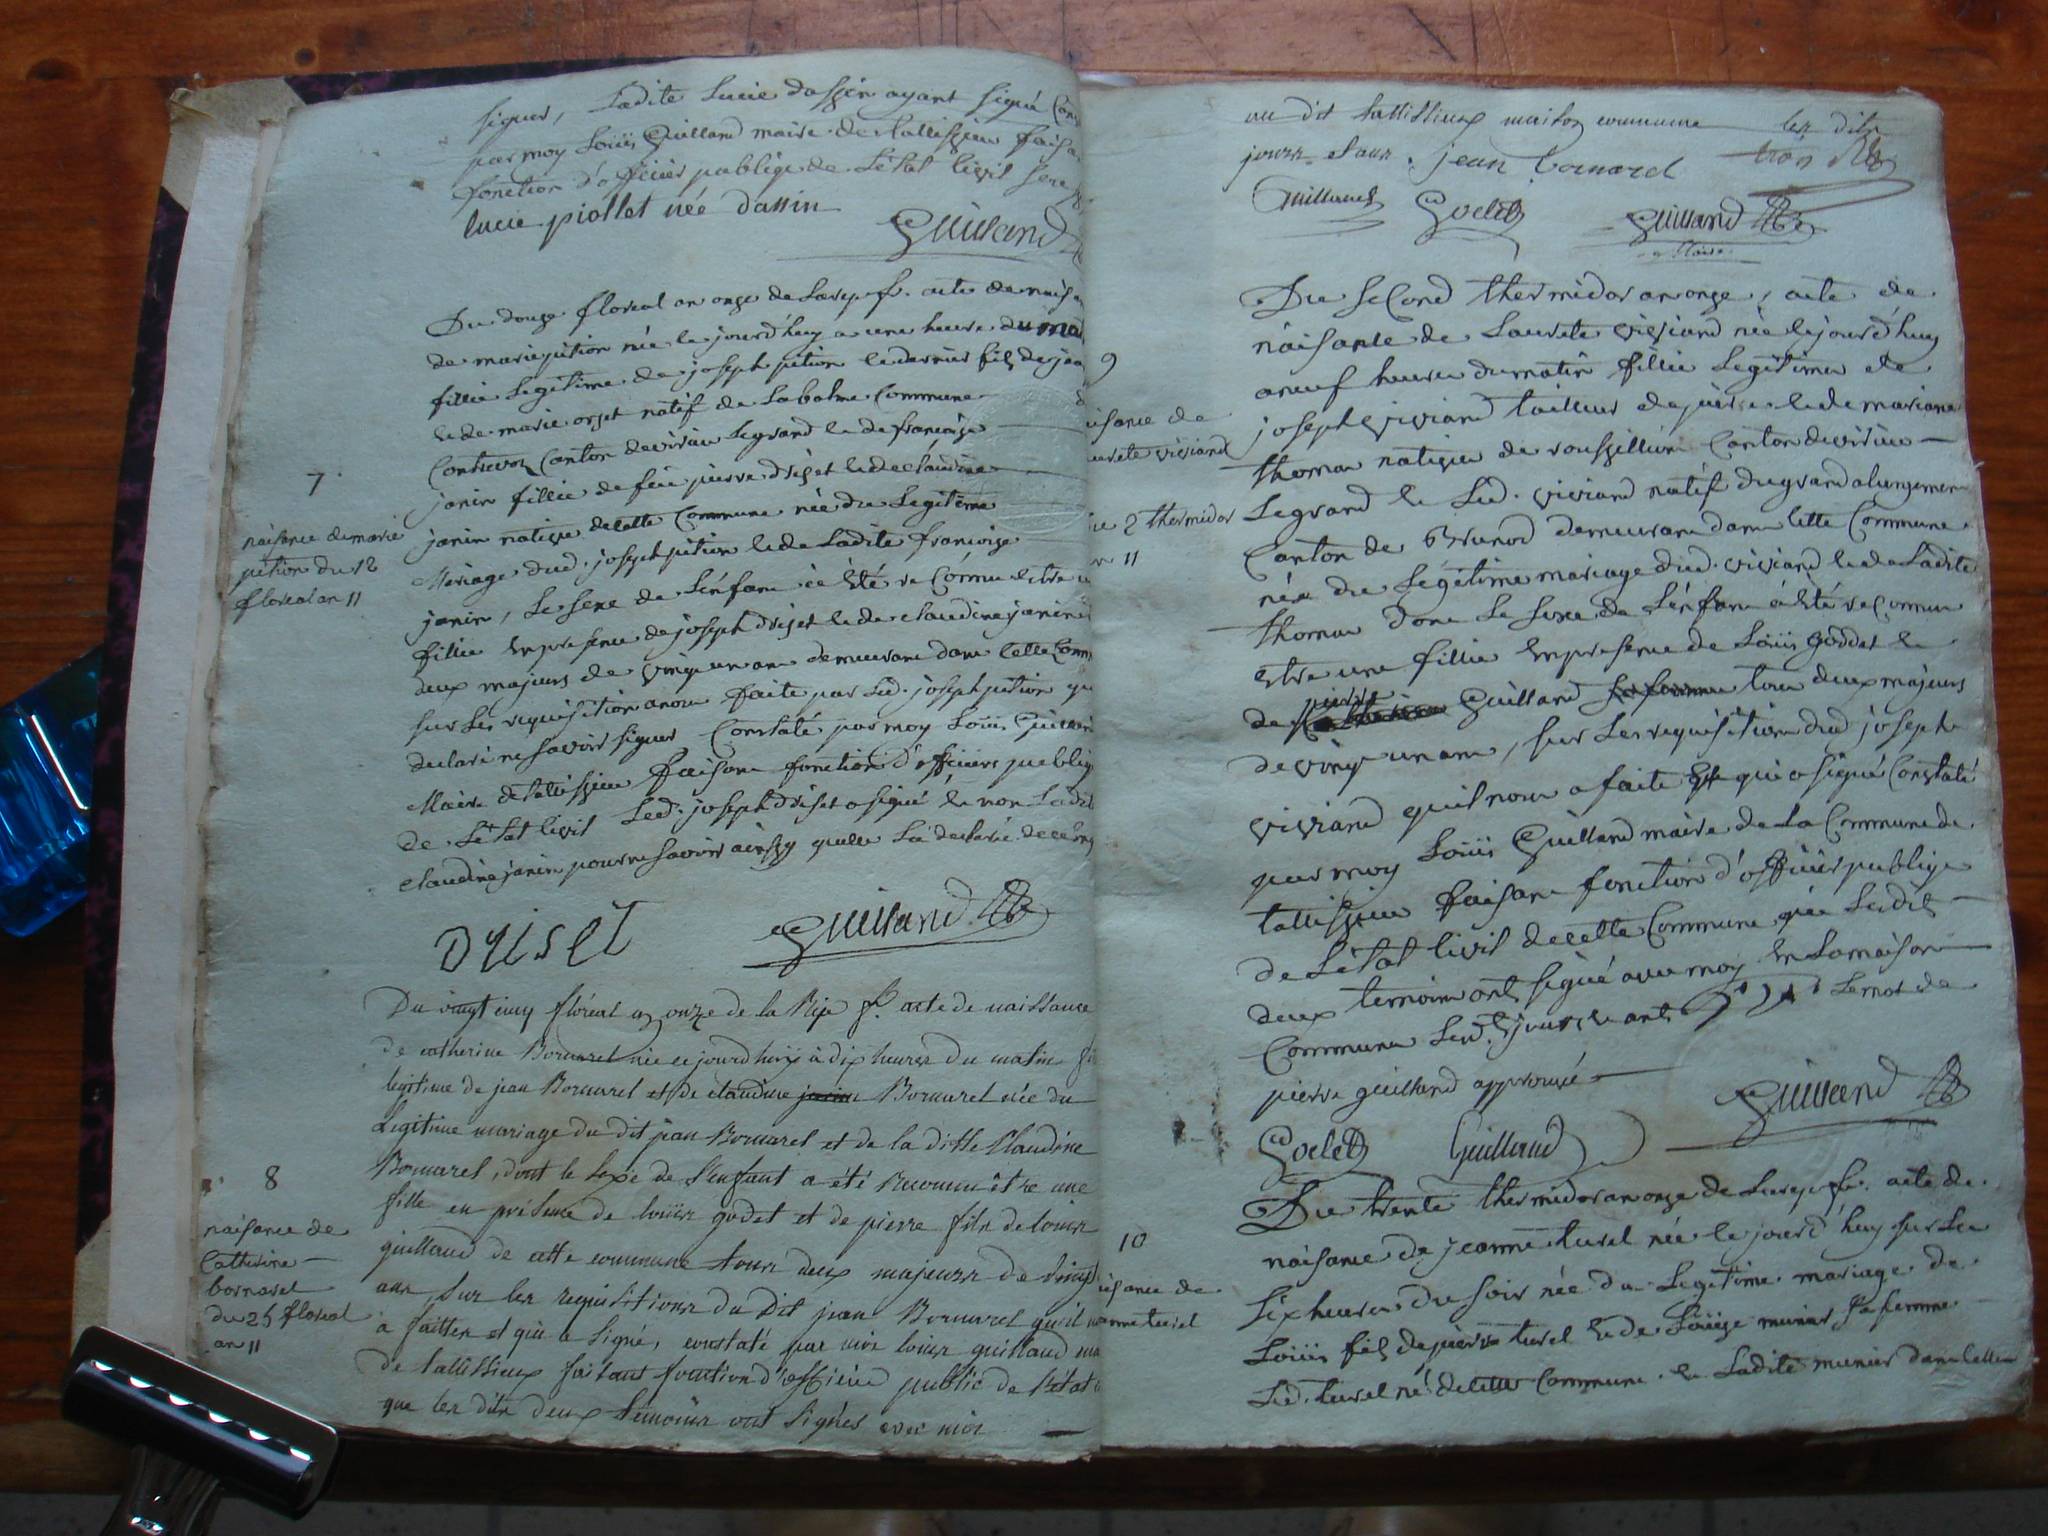 signer, Ladite Lucie dassin ayant signé
par moy Loüis Guilland maire de tallissieu faisa
fonction d'officiér publiqe de L'état Civil
lucie piollet née dassin
Guilland
Du douze floreal an onze de La rep. fr. acte de nais
de marie pition née le jourd'huy a une heure du mat
fillie Legitime de joseph pition fils de jea
& de marie orset natif de Labalme Commune
Canton de virieu Legrand & de françoise
janin fillie de feu pierre driset & de claudine
janin natiqe de cette Commune née du Legitime
Mariage dud. joseph pition & de Ladite françoise
janin, Le sexe de L'énfant à été reConnu estre u
fillie en presence de joseph driset & de claudine janin
deux majeurs de vingt un ans demeurant dans Cette Comm
sur Les requisition a nous faite par Led. joseph pition qu
declaré ne savoir signer Constaté par moy Loüis Guilland
Maire de tallissieu faisant fonction d'officiers publiq
de L'état Civil Led. joseph driset a signé & non Ladit
claudine janin pour ne savoir ainsy qu'elle L'a declaré de ce
7.
naisance de marie
pition du 12
floreal an 11
DRISET
Guilland
Du vingt cinq floréal an onze de la Rép. fr. acte de naissance
de catherine Bornarel née ce jourd'huÿ à dix heures du matin fi
legitime de jean Bornarel et de claudine janin Bornarel née du
Legitime mariage du dit jean Bornarel et de la ditte Claudine
Bornarel, dont le sexe de l'enfant a été Reconnu être une
fille en présence de loüis godet et de pierre fils de louis
guilland de cette commune tous deux majeurs de vingt
ans, sur les requisitions du dit jean Bornarel qu'il n
a faittes et qui a signé, constaté par moi louis guilland ma
de tallissieux faisant fonction d'officier public de l'état
que les dits deux témoins ont signés avec moi
8
naisance de
Catherine
bornarel
du 25 floreal
an 11
au dit tallissieux maison commune les dits
jours et ans. jean bornarel
Guilland Godet Guilland
Maire
Du seCond thermidor an onze, acte de
naisance de Laurete viviand née le jourd'huy
a neuf heures du matin fillie Legitime de
joseph viviand tailleur de pierre & de mariane
thomas natiqe de roussillion Canton de virieu
Legrand & Led. viviand natif du grand
Canton de Brenod demeurant dans Cette Commune
née du Legitime mariage dud. viviand & de Ladite
thomas dont Le sexe de L'énfant à été reConnu
estre une fillie en presence de Loüis goddet &
de pierre Guilland tous deux majeurs
de vingt un ans, sur Les requisition dud joseph
viviand qu'il nous a faite qui a signé Constaté
par moy Loüis Guilland maire de La Commune de
tallissieu faisant fonction d'officiér publiqe
de L'état Civil de cette Commune que Lesdits
deux temoins ont signé avec moy en La maison
Commune Led. jours & ans Le mot de
pierre guilland approuvé
Guilland
Godet Guilland
9
isance de
urete viviand
2 thermidor
11
Du trente thermidor an onze de La rep. fr. acte de
naisance de jeanne turel née le jourd'huy sur Les
six heures du soir née du Legitime mariage de
Loüis fils de pierre turel & de Loüise munier sa femme
Led. turel né de cette Commune & Ladite munier dans Celle
10
isance de
anne turel